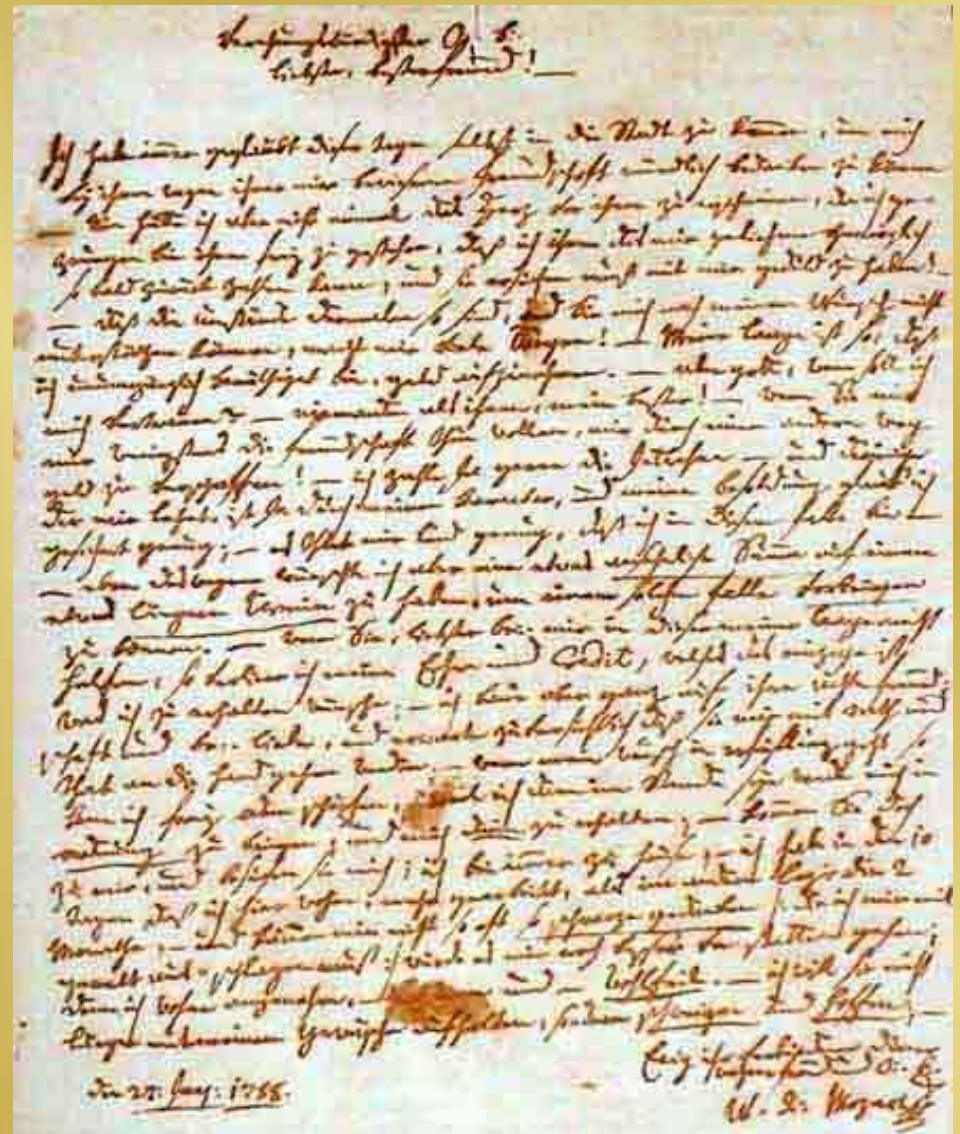 Verehrungswürdigster O. B.
liebster, bester freund! —
Ich habe immer geglaubt dieser tagen selbst in die Stadt zu kommen, um mich
bey ihnen wegen ihrer mir bewiesenen freundschaft mündlich bedanken zu können
Nun hätte ich aber nicht einmal das Herz vor ihnen zu erscheinen, da ich ge-
zwungen bin ihnen frey zu gestehen, daß ich ihnen das mir geliehene ohnmöglich
so bald zurück zahlen kann, und sie ersuchen muß mit mir geduld zu haben! —
— daß die umstände dermalen so sind, und Sie mich nach meinem Wunsch nicht
unterstützen können, macht mir viele Sorgen! — Meine Laage ist so, daß
ich unumgänglich benöthiget bin, geld aufzunehmen. — aber gott, wem soll ich
mich vertrauen? — niemanden als ihnen, mein bester! — wenn Sie mir
nur wenigstens die freundschaft thun wollen, mir durch einen andern weg
geld zu verschaffen! — ich zahle ja gerne die Interessen — und derjenige
der mir lehnte ist ja durch meinen karakter, und meine besoldung glaub ich
gesichert genug; — es thut mir leid genug, daß ich in diesem falle bin —
— eben deswegen wünschte ich aber eine etwas ansehnliche Summe auf einen
etwas längern Termin zu haben, um einem solchen falle vorbeugen
zu können. — wenn Sie, liebster br: mir in dieser meiner laage nicht
helfen, so verliere ich meine Ehre und Credit, welches das einzige ist,
was ich zu erhalten wünsche; — ich baue aber ganz auf ihre ächte freund-
schaft und br: liebe, und erwarte zuversichtlich daß sie mir mit rath und
that an die hand gehen werden. — wenn mein wunsch in erfüllung geht, so
kann ich frey odem schöpfen, weil ich dann im Stande seyn werde mich in
ordnung zu bringen, und auch darin zu erhalten; — kommen Sie doch
zu mir, und besuchen sie mich; ich bin immer zu hause; — ich habe in den 10
tagen daß ich hier wohne, mehr gearbeitet, als im andern Logis die 2
Monathe, — und kämen mir nicht so oft so schwarze gedanken (die ich mir mit
gewalt ausschlagen muß) würde es mir noch besser von statten gehen;
denn ich wohne angenehm, — und — wohlfeil. — ich will sie nicht
länger mit meinem gewäsche aufhalten, sondern schweigen und hoffen. —
Ewig ihr verbundener diener
wahrer freund und O. B.
den 27: Juny: 1788.
W: A: Mozart